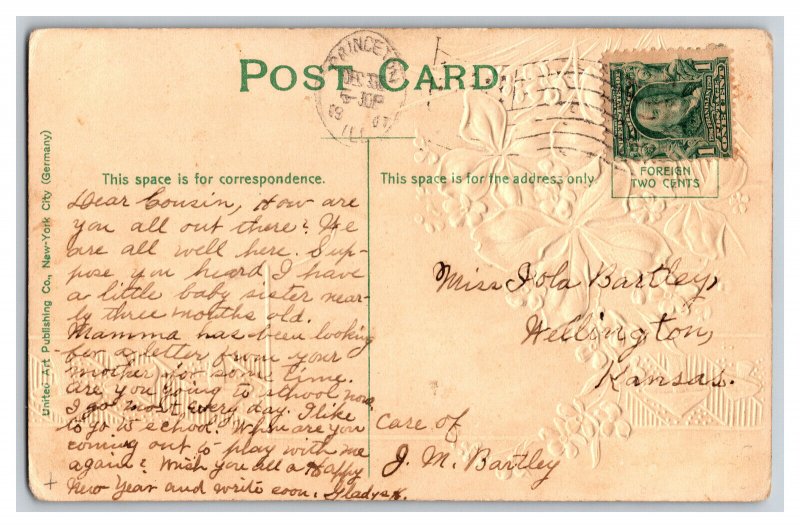 POST CARD
PRINCETON
DEC 31
ILL.
1 1
ONE CENT
FOREIGN
TWO CENTS
This space is for correspondence.
This space is for the address only
United Art Publishing Co., New-York City (Germany)
Dear Cousin, How are
you all out there? We
are all well here. Sup-
pose you heard I have
a little baby sister near-
ly three months old.
Mamma has been looking
for a letter from your
mother for some time.
Are you going to school now.
I go most every day. I like
to go to school. When are you
coming out to play with me
again? Wish you all a Happy
New Year and write soon. Gladys H.
Miss Iola Bartley,
Wellington,
Kansas.
Care of
J. M. Bartley